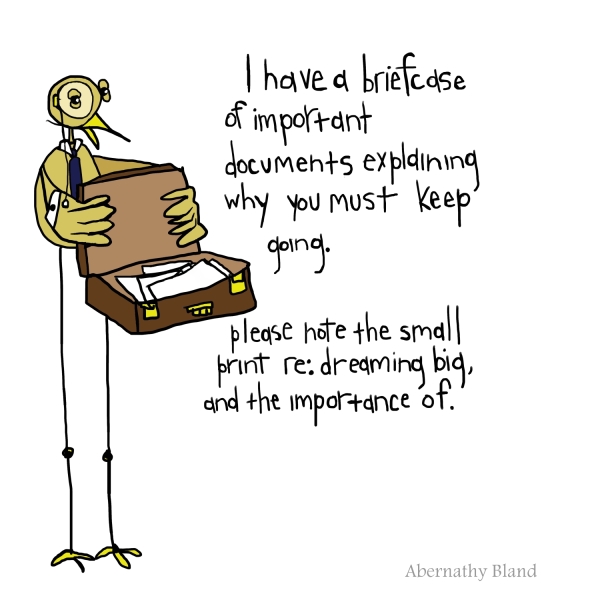 I have a briefcase
of important
documents explaining
why you must keep
going.
please note the small
print re: dreaming big,
and the importance of.
Abernathy Bland